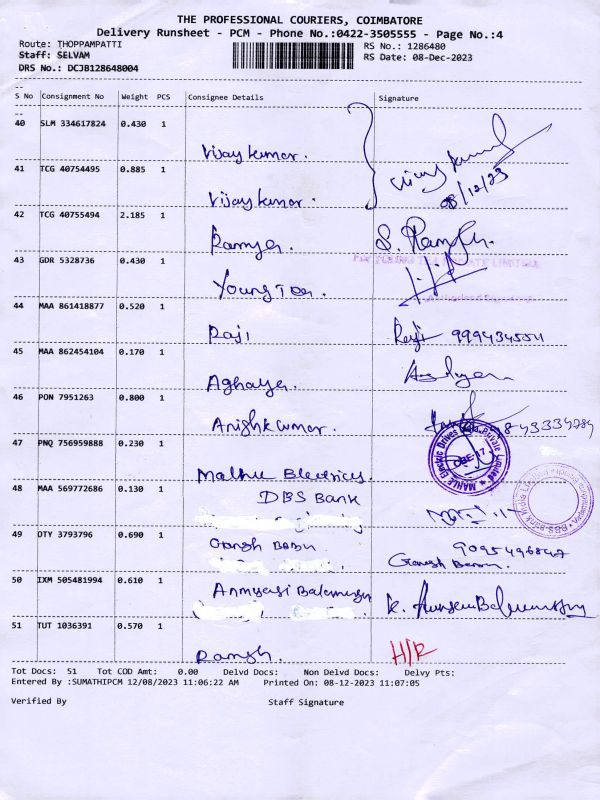 THE PROFESSIONAL COURIERS, COIMBATORE
Delivery Runsheet - PCM - Phone No.:0422-3505555 - Page No.:4
Route: THOPPAMPATTI
Staff: SELVAM
DRS No.: DCJB128648004
RS No.: 1286480
RS Date: 08-Dec-2023
S No Consignment No Weight PCS Consignee Details Signature
40 SLM 334617824 0.430 1
Vijay kumar.
08/12/23
41 TCG 40754495 0.885 1
Vijay kumar.
42 TCG 40755494 2.185 1
Ramya.
43 GDR 5328736 0.430 1
44 MAA 861418877 0.520 1
Raji
45 MAA 862454104 0.170 1
46 PON 7951263 0.800 1
Anishkumar.
47 PNQ 756959888 0.230 1
MAHLE Electric Drives India Private Limited
48 MAA 569772686 0.130 1
DBS Bank
49 OTY 3793796 0.690 1
Ganesh Babu
50 IXM 505481994 0.610 1
51 TUT 1036391 0.570 1
Ramesh.
H/R
Tot Docs: 51 Tot COD Amt: 0.00 Delvd Docs: Non Delvd Docs: Delvy Pts:
Entered By :SUMATHIPCM 12/08/2023 11:06:22 AM Printed On: 08-12-2023 11:07:05
Verified By Staff Signature